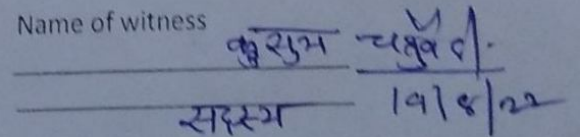 Name of witness
कुसुम चतुर्वेदी.
सदस्य 19/8/22